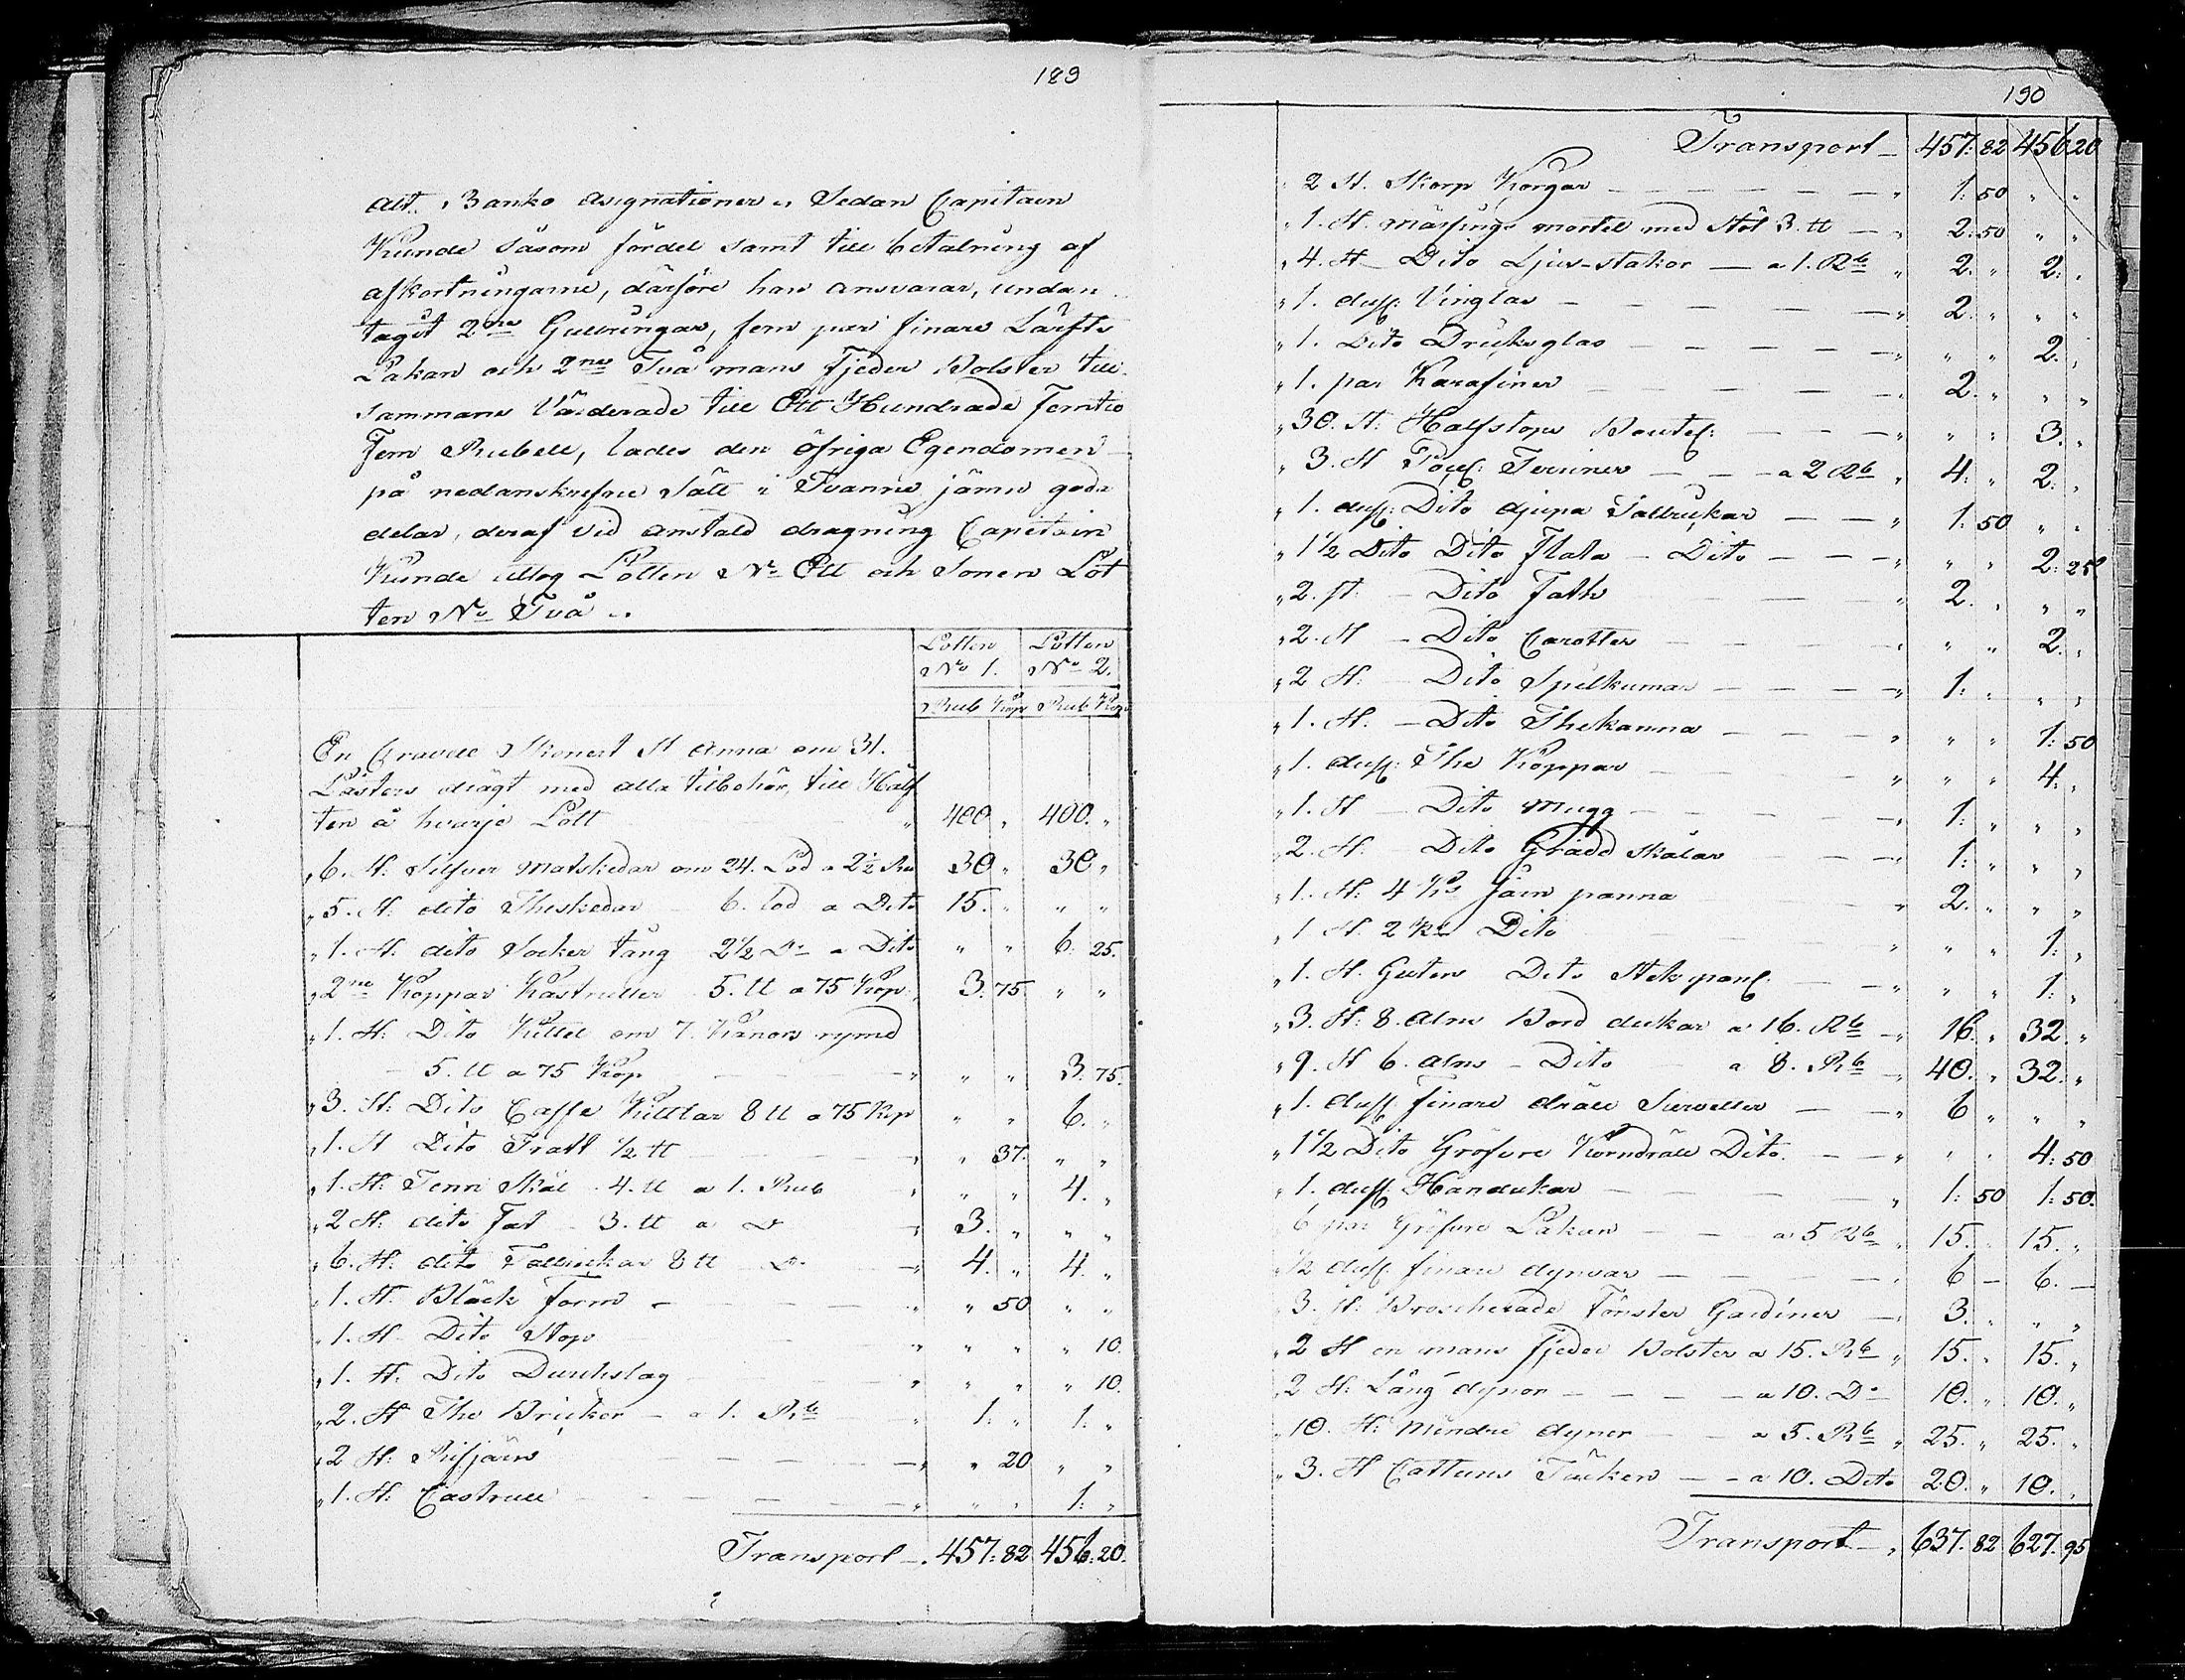 189
alt. Banko Assignationer. Sedan Capitain
Kunde såsom fördel samt till betalning af
afkortningarne, därföre han ansvarar, undan
tagit 2ne Gullringar, fem par finare Lärfts
Lakan och 2ne Två mans Fjeder Bolster till
sammans Värderade till Ett Hundrade femtio
Fem Rubell, lades den öfriga Egendomen
på nedanskrefne sätt i Tvänne jämn goda
delar, deraf vid anstäld dragning Capitain
Kunde tillog Lotten No Ett och Sonen Lot
ten No Två ..
Lotten Lotten
No 1. No 2.
Rub Kop Rub Kop
En Gravell Skonert St Anna om 31.
Lästers drägt med alla tilbehör, till Hälf
ten å hvarje Lott " 400. " 400. "
" 6. St: Silfver Matskedar om 24. Lod a 2 1/2 Ru 30 " 30 "
" 5. St: dito Theskedar - 6. Lod a Dito 15. " " "
" 1. St: dito Socker tång - 2 1/2 Do a Dito " " 6: 25.
" 2ne Koppar Kastruller 5. ℔ a 75 Kop: 3: 75. " "
" 1. St: Dito Kittel om 7. Kanors rymd
- 5. ℔ a 75 Kop - " " " 3: 75.
" 3. St: Dito Caffe Kittlar 8 ℔ a 75 Kop " " 6. "
" 1. St Dito Tratt 1/2 ℔ - " " 37. " "
" 1. St: Tenn Skål - 4. ℔ a 1. Rub " " " 4. "
" 2 St: dito Fat - 3. ℔ a Do " 3. " " "
" 6. St: dito Tallrickar 8 ℔ Do - " 4. " 4. "
" 1. St. Bläck form - " " 50 " "
" 1. St - Dito Stop " " " " 10.
" 1. St. Dito Durchslag " " " " 10.
" 2. St The Brickor - a 1. Rb " 1: " 1: "
" 2 St: Rifjärn " " 20 " "
" 1. St: Castrull " " " 1: "
Transport - 457: 82 456: 20.
190
Transport - 457: 82 456 20
" 2 St. Skorp Korgar - " 1: 50 " "
" 1. St. mässings mortel med Stöt 3. ℔ - " 2: 50 " "
" 4. St - Dito Ljus-stakar - a 1. Rb " 2. " 2: "
" 1. duss: Vinglas - " 2. " " "
" 1. Dito Dricksglas - " " " 2. "
" 1. par Karafiner - " 2. " " "
" 30. St: Halfstops Boutel: - " " " 3. "
" 3. St Terriner - a 2 Rb " 4: " 2: "
" 1. duss: Dito djupa Tallrickar - " 1: 50 " "
" 1 1/2 Dito Dito Flata - Dito - " " " 2: 25
" 2. st. - Dito Fath - " 2. " " "
" 2. St - Dito Carotter - " " " 2. "
" 2 St: - Dito Spilkumar - " 1: " " "
" 1. St. - Dito Thekanna - " " " 1: 50
" 1. duss: The Koppar - " " " 4: "
" 1. St - Dito Mugg - " 1: " " "
" 2. St: - Dito Grädd skålar - " 1: " " "
" 1. St: 4 Ks Järn panna " 2. " " "
" 1 St. 2 Ks Dito " " " 1: "
" 1. St. Guten Dito Stek pan: - " " " 1: "
" 3. St: 8. alns Bord dukar a 16. Rb " 16. " 32. "
" 9. St 6. alns - Dito a 8. Rb " 40. " 32. "
" 1. duss: finare dräll Servetter - " 6 " " "
" 1 1/2 Dito Gröfvre Korndräll Dito. - " " " 4: 50
" 1. duss: Handukar - " 1: 50 1: 50.
6 par Gröfvre Lakan - a 5 Rb " 15. " 15. "
1/2 duss. finare dynvar - " 6 - 6. -
3. St: Broscherade Fönster Gardiner - 3. " " "
" 2 St en mans fjeder Bolster a 15. Rb " 15. " 15. "
" 2 St: Lång dynor - a 10. Do 10. " 10. "
" 10. St: Mindre dynor - a 5. Rb " 25. " 25. "
" 3. St Cattuns Täcken - a 10. Dito 20. " 10. "
Transport - " 637. 82 627. 95